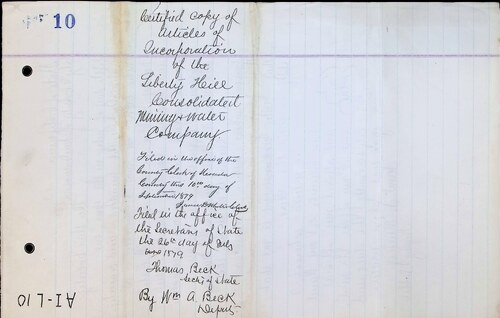 10
Certified Copy of
Articles of
Incorporation
of the
Liberty Hill
Consolidated
Mining & Water
Company
Filed in the office of the
County Clerk of Nevada
County this 10th day of
September 1879
Filed in the office of
the Secretary of State
the 26th day of
1879
Thomas Beck
Secty of State
By Wm A. Beck
Deputy
AI-L10